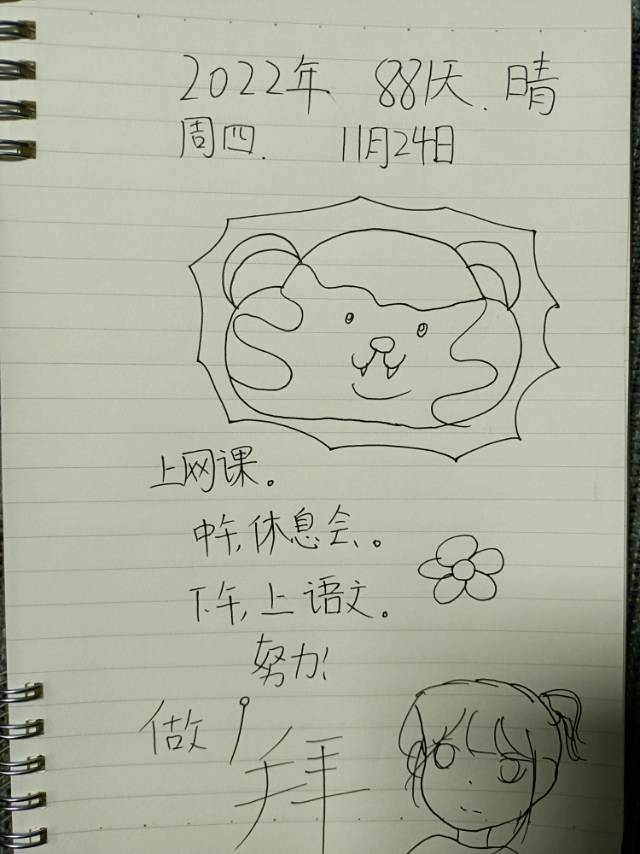 2022年 881天.晴
周四. 11月24日
上网课。
中午,休息会、。
下午,上语文。
努力!
做
拜